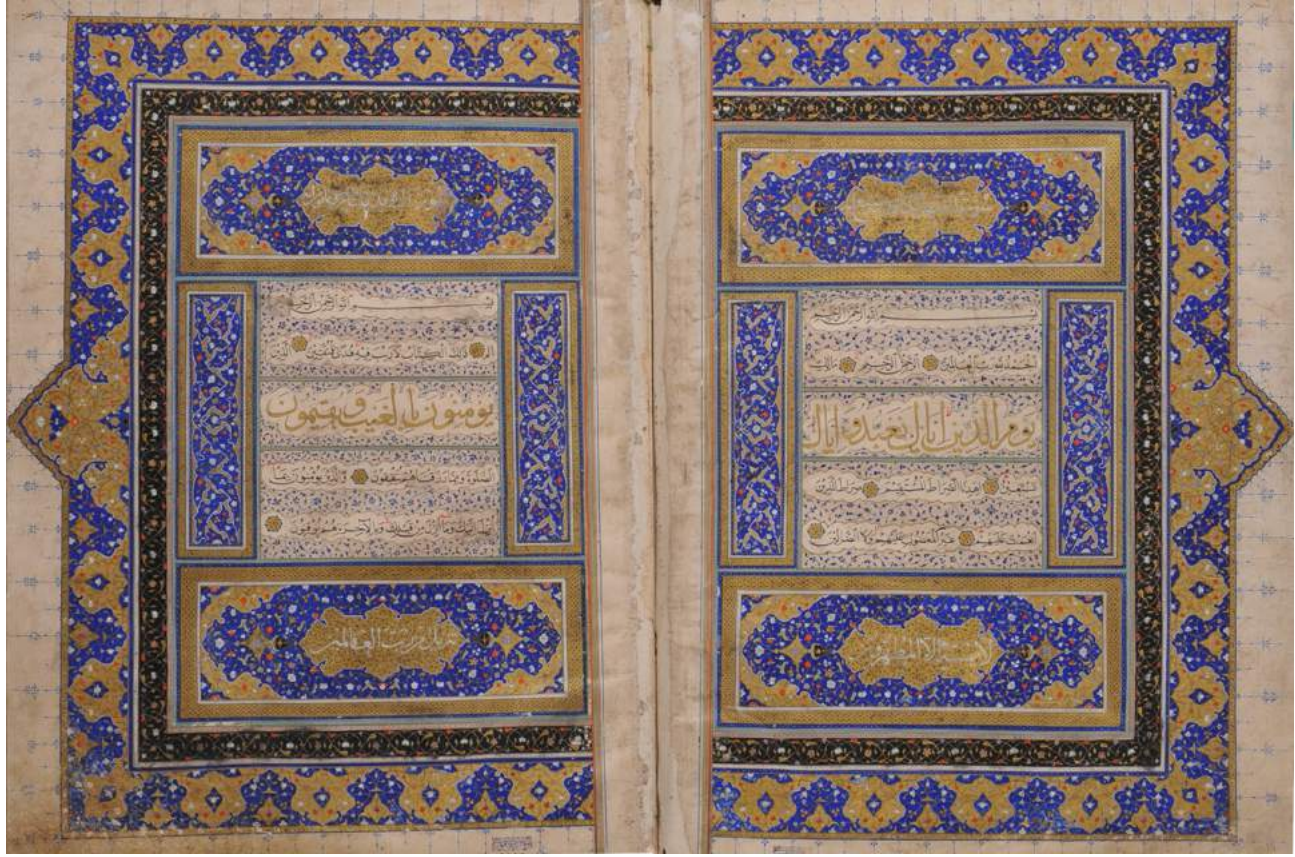 بسم الله الرحمن الرحيم
الحمد لله رب العلمين الرحمن الرحيم ملك
يوم الدين اياك نعبد و اياك
نستعين اهدنا الصراط المستقيم صراط الذين
انعمت عليهم غير المغضوب عليهم ولا الضالين
لا يمسه الا المطهرون
بسم الله الرحمن الرحيم
الم ذلك الكتاب لا ريب فيه هدى للمتقين الذين
يومنون بالغيب و يقيمون
الصلوة ومما رزقناهم ينفقون والذين يؤمنون بما
انزل اليك وما انزل من قبلك وبالاخرة هم يوقنون
تنزيل من رب العالمين